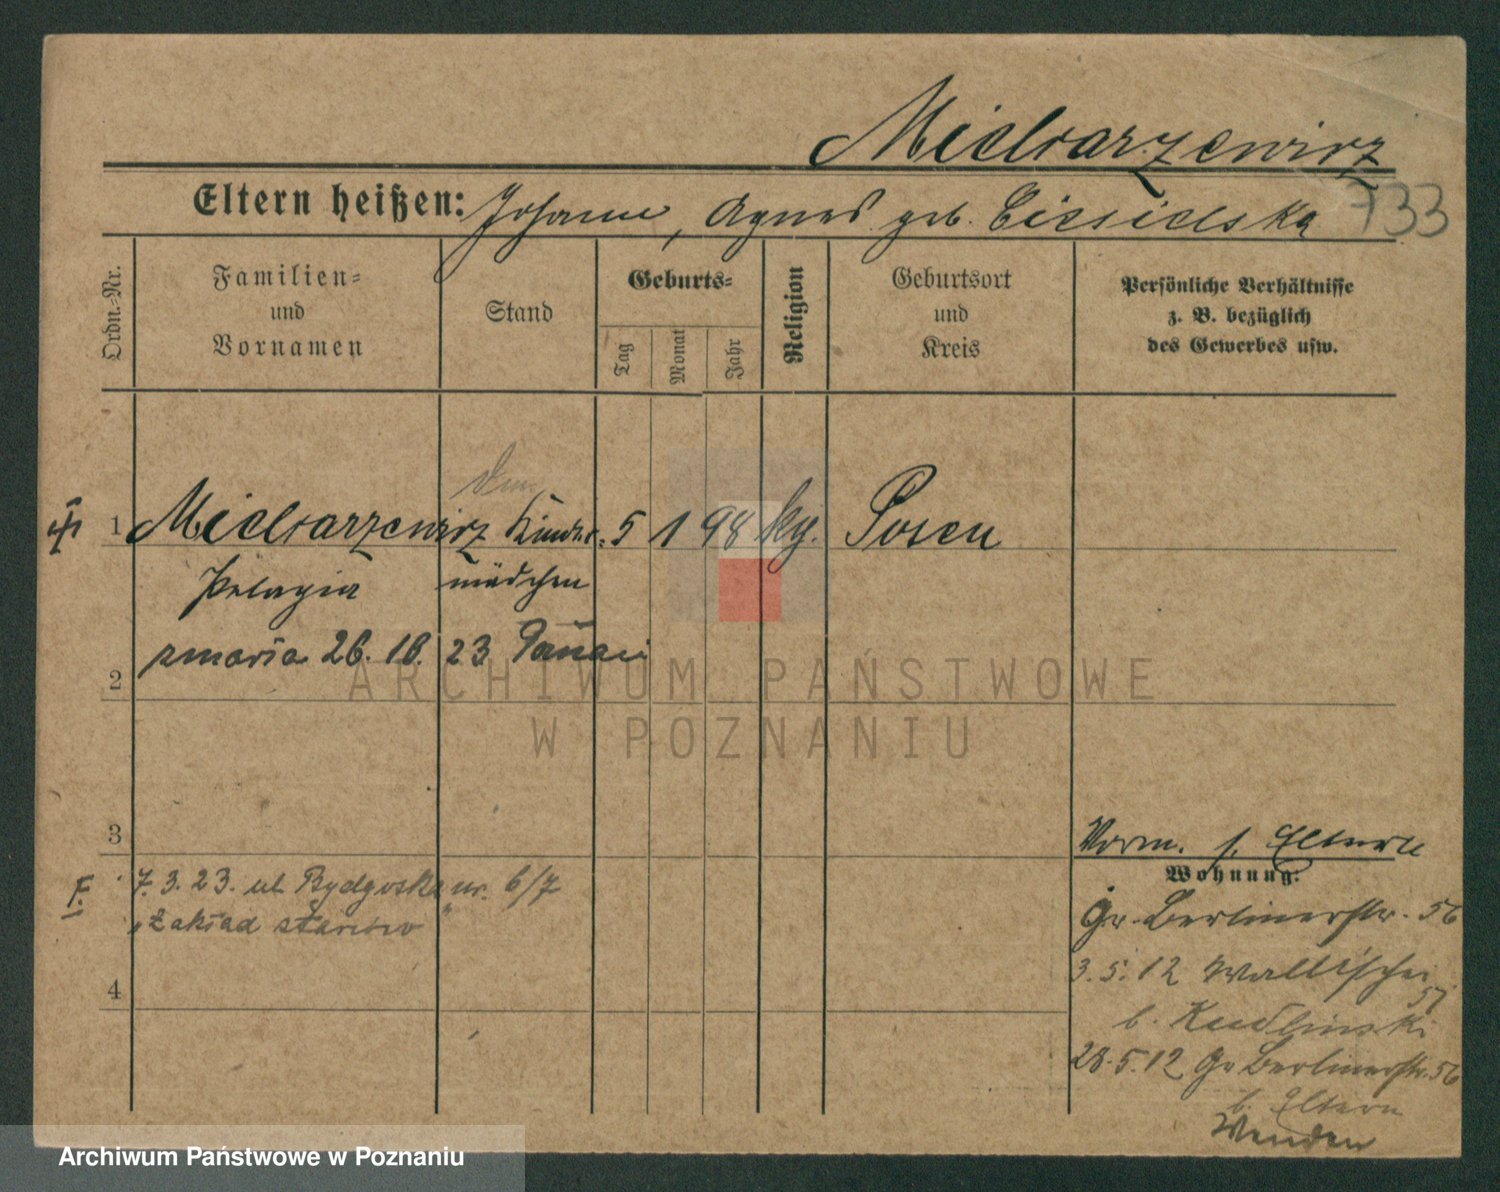 Micharzewicz
733
Eltern heißen: Johann, Agnes geb. Ciesielska
Ordn.-Nr.
Familien-
und
Vornamen
Stand
Geburts-
Tag
Monat
Jahr
Religion
Geburtsort
und
Kreis
Persönliche Verhältnisse
z. B. bezüglich
des Gewerbes usw.
1 Micharzewicz Kinder- 5 1 98 kg. Posen
Pelagia mädchen
zmarła 26. 10. 23
2
3
7. 3. 23. ul Bydgoska nr. 6/7
„Zakład starców"
4
Vorm. s. Eltern
Wohnung:
Gr. Berlinerstr. 56
3. 5. 12 Wallischei
57
b. Kudlinski
28. 5. 12 Gr Berlinerstr. 56
b. Eltern
Wenden
ARCHIWUM PAŃSTWOWE
W POZNANIU
Archiwum Państwowe w Poznaniu